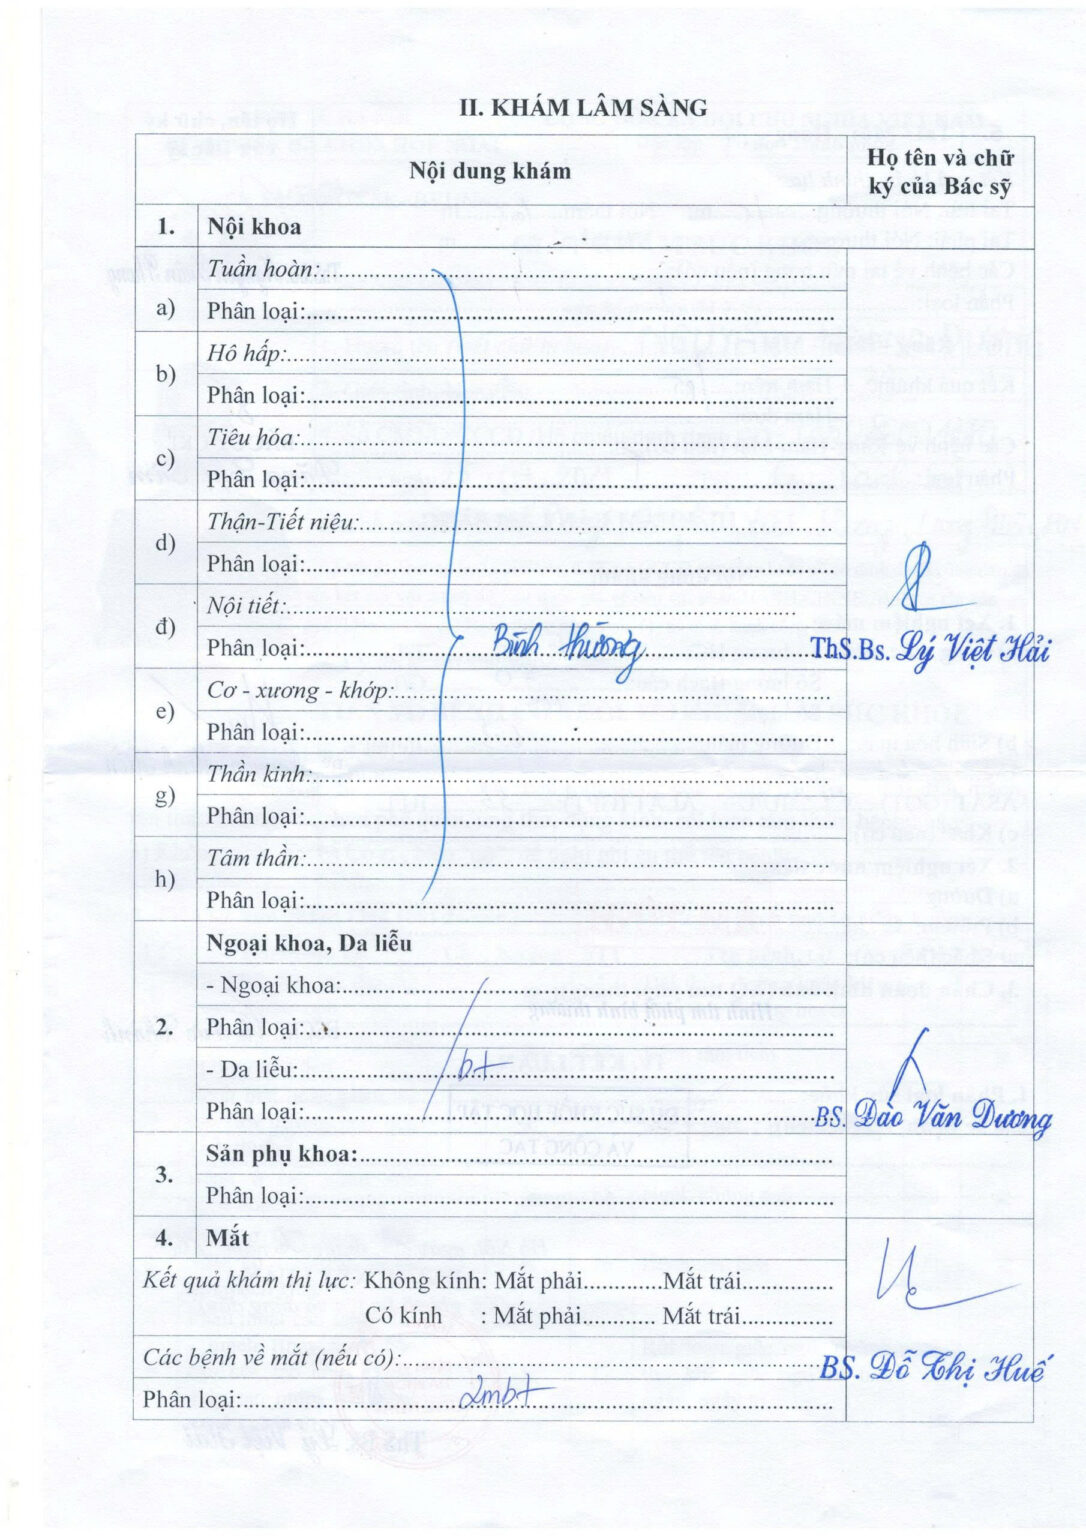 II. KHÁM LÂM SÀNG
Nội dung khám
Họ tên và chữ
ký của Bác sỹ
1. Nội khoa
a)
Tuần hoàn:
Phân loại:
b)
Hô hấp:
Phân loại:
c)
Tiêu hóa:
Phân loại:
d)
Thận-Tiết niệu:
Phân loại:
đ)
Nội tiết:
Phân loại: Bình thường
ThS.Bs. Lý Việt Hải
e)
Cơ - xương - khớp:
Phân loại:
g)
Thần kinh:
Phân loại:
h)
Tâm thần:
Phân loại:
2.
Ngoại khoa, Da liễu
- Ngoại khoa:
Phân loại:
- Da liễu: bt
Phân loại:
BS. Đào Văn Dương
3.
Sản phụ khoa:
Phân loại:
4. Mắt
Kết quả khám thị lực: Không kính: Mắt phải.............Mắt trái...............
Có kính : Mắt phải............ Mắt trái...............
Các bệnh về mắt (nếu có):
BS. Đỗ Thị Huế
Phân loại: 2mbt